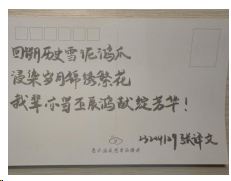 回眸历史雪泥鸿爪
浸染岁月锦绣繁花
我辈亦当丕展鸿猷绽芳华！
张译文